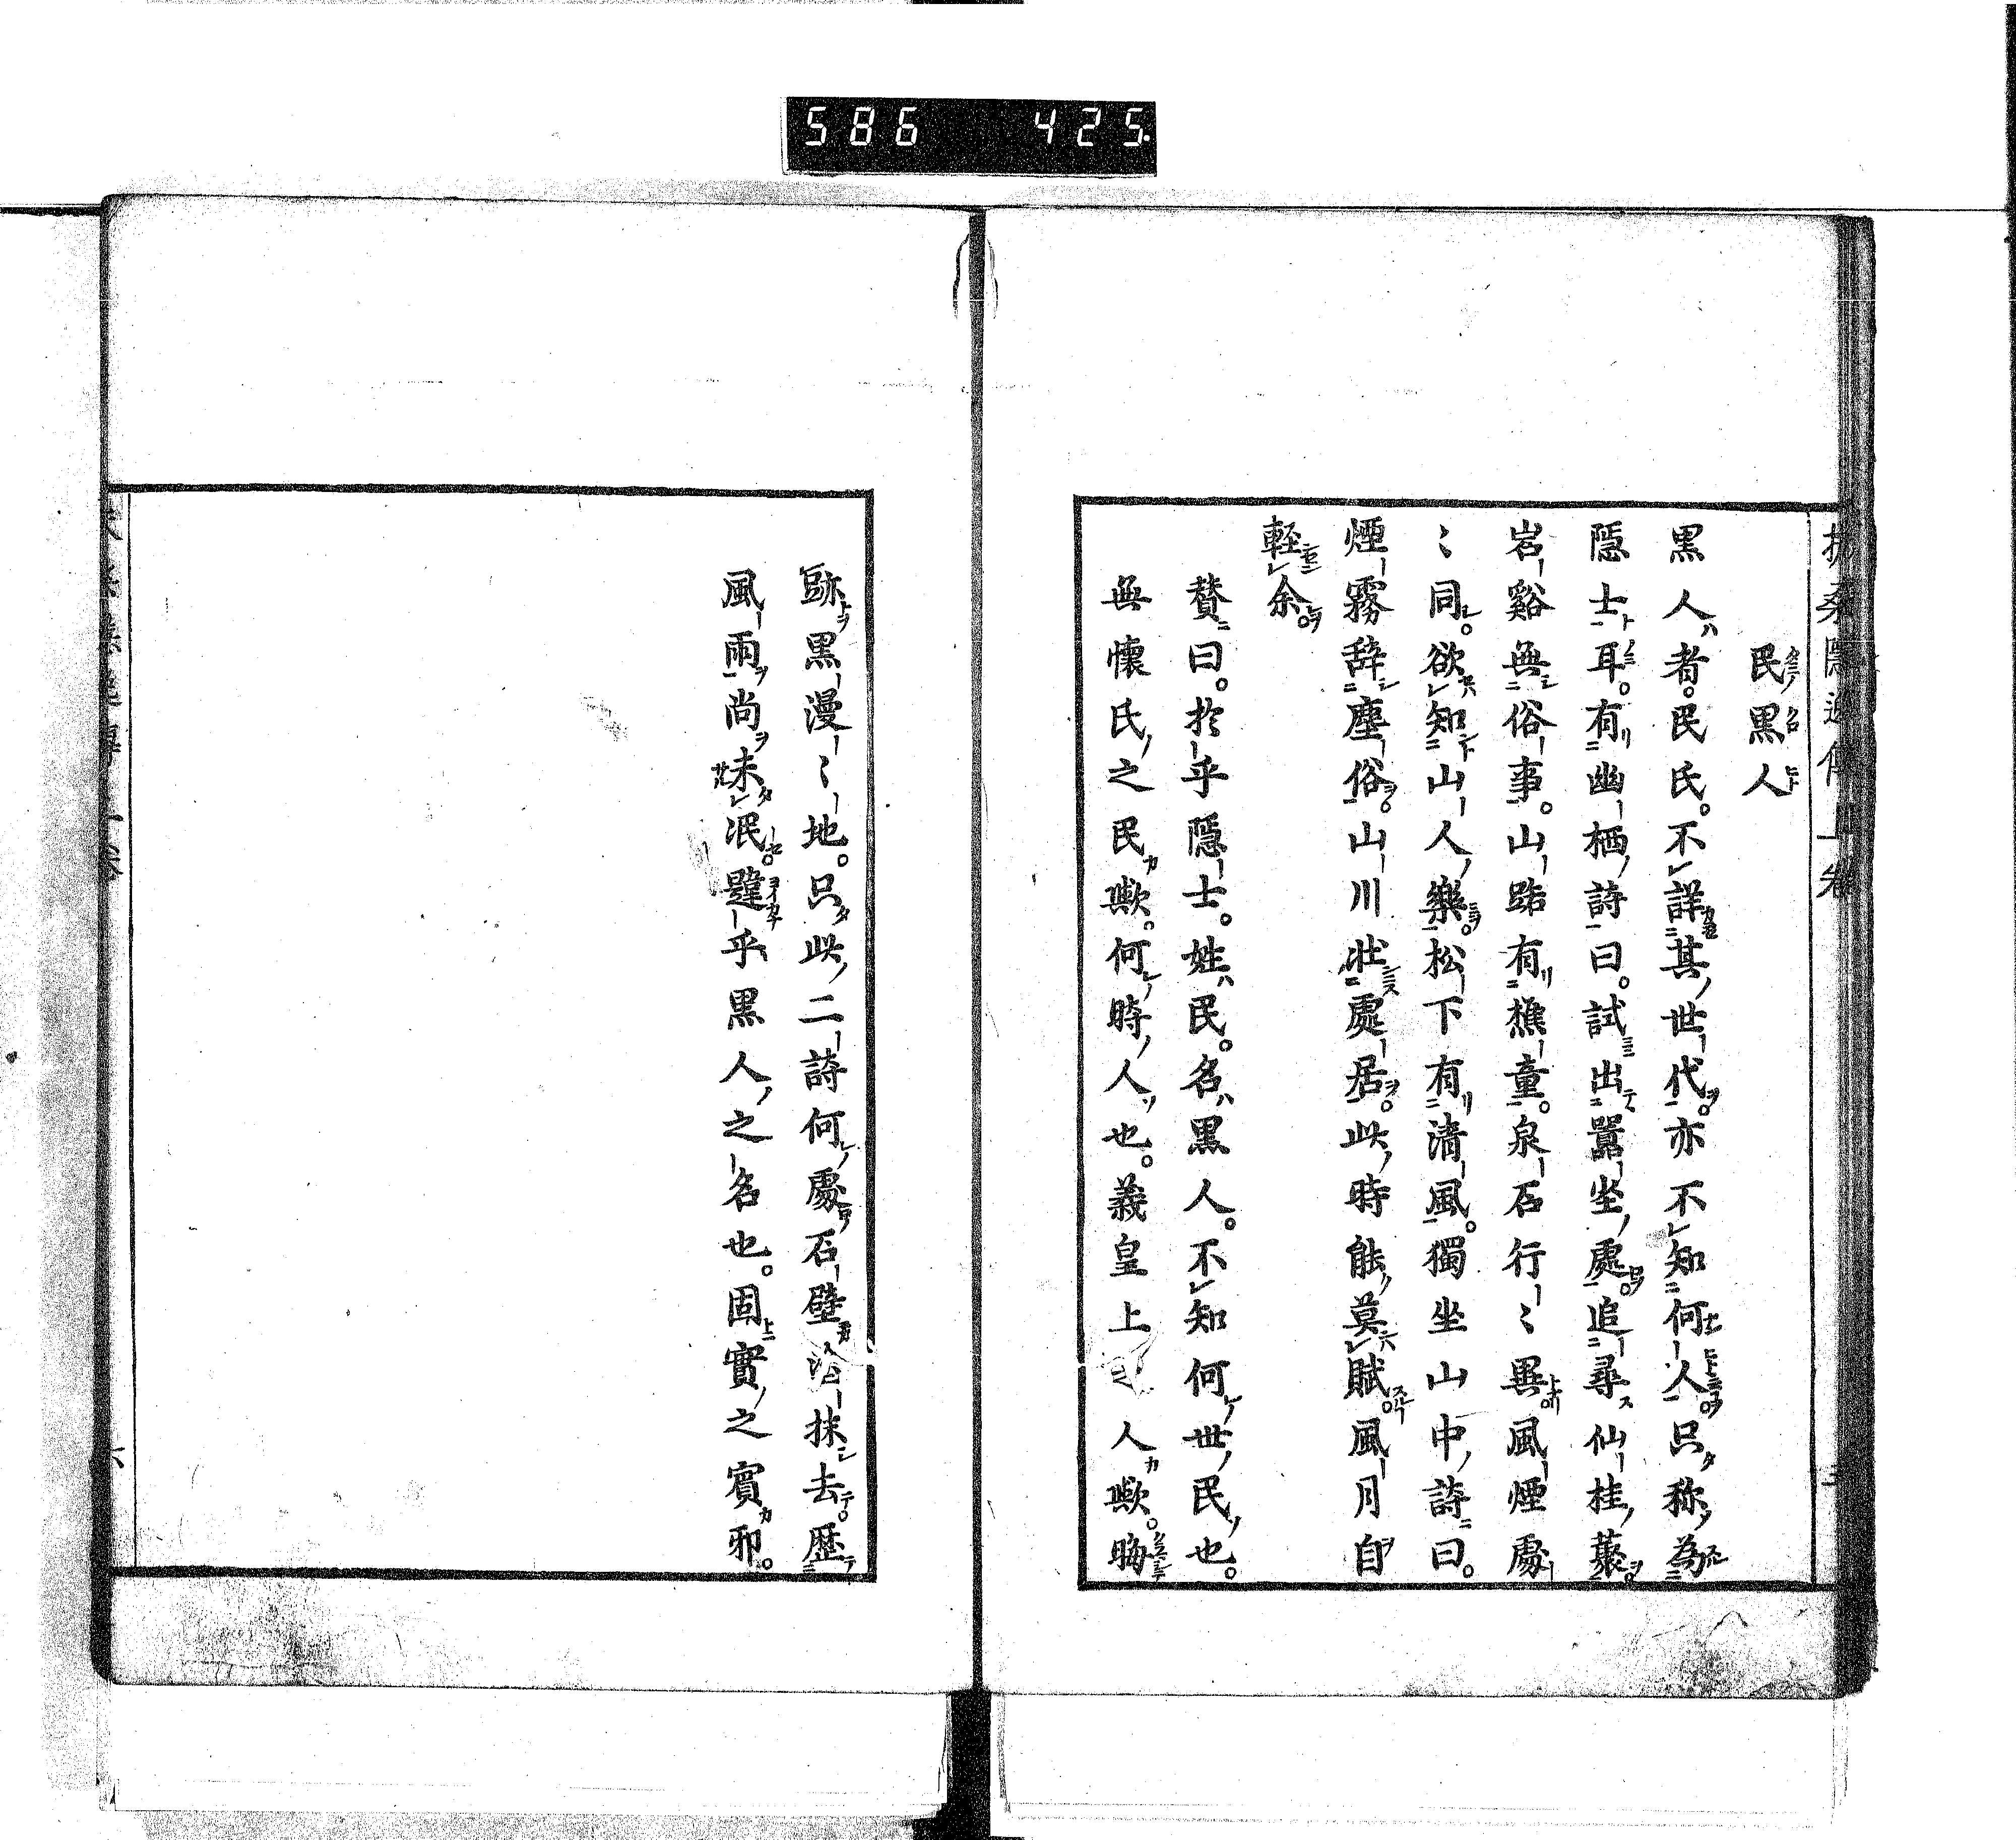 586 425
扶桑隱逸傳上卷
民黒人
黒人者。民氏。不詳其世代。亦不知何人。只称為
隱士耳。有幽栖詩曰。試出囂坐處。追尋仙桂藂。
岩谿無俗事。山路有樵童。泉石行〻異。風煙處
〻同。欲知山人樂。松下有清風。獨坐山中詩曰。
煙霧辞塵俗。山川壯處居。此時能莫賦。風月自
軽余。
賛曰。於乎隱士。姓民。名黒人。不知何世民也。
無懐氏之民歟。何時人也。義皇上人歟。晦
跡黒漫〻地。只此二詩何處石壁塗抹去。歴
風雨尚未泯。韙乎黒人之名也。固實之賓邪。